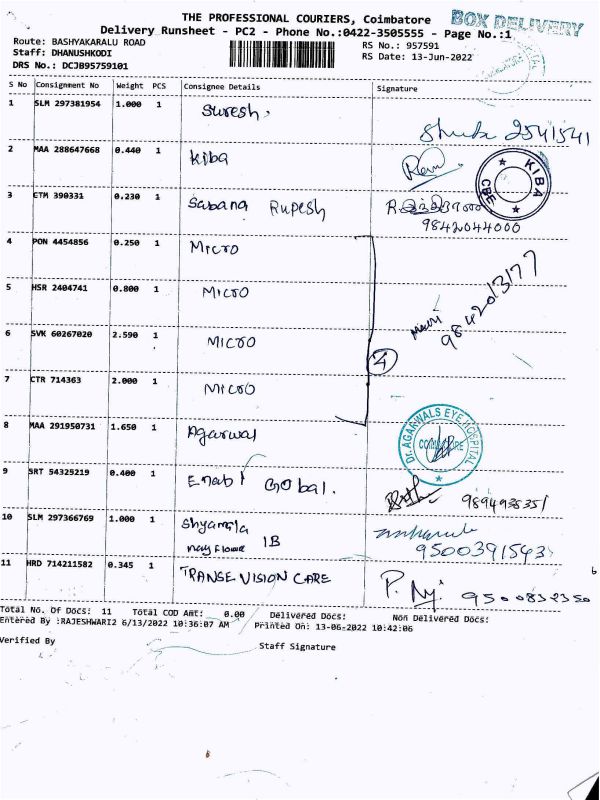 THE PROFESSIONAL COURIERS, Coimbatore
BOX DELIVERY
Delivery Runsheet - PC2 - Phone No.:0422-3505555 - Page No.:1
Route: BASHYAKARALU ROAD
RS No.: 957591
Staff: DHANUSHKODI
RS Date: 13-Jun-2022
DRS No.: DCJB95759101
S No Consignment No Weight PCS Consignee Details Signature
1 SLM 297381954 1.000 1 Suresh. 2541541
2 MAA 288647668 0.440 1 Kiba
KIBA CBE
3 CTM 390331 0.230 1 Sabana Rupesh
9842044000
4 PON 4454856 0.250 1 Micro
5 HSR 2404741 0.800 1 Micro
9842013177
6 SVK 60267020 2.590 1 Micro
4
7 CTR 714363 2.000 1 Micro
8 MAA 291950731 1.650 1 Agarwal
Dr. AGARWALS EYE HOSPITAL
COIMBATORE
9 SRT 54325219 0.400 1 Global.
10 SLM 297366769 1.000 1 Shyamla
IB
9500391543
11 HRD 714211582 0.345 1 TRANSE VISION CARE
9500832350
Total No. Of Docs: 11 Total COD Amt: 0.00 Delivered Docs: Non Delivered Docs:
Entered By :RAJESHWARI2 6/13/2022 10:36:07 AM Printed On: 13-06-2022 10:42:06
Verified By
Staff Signature